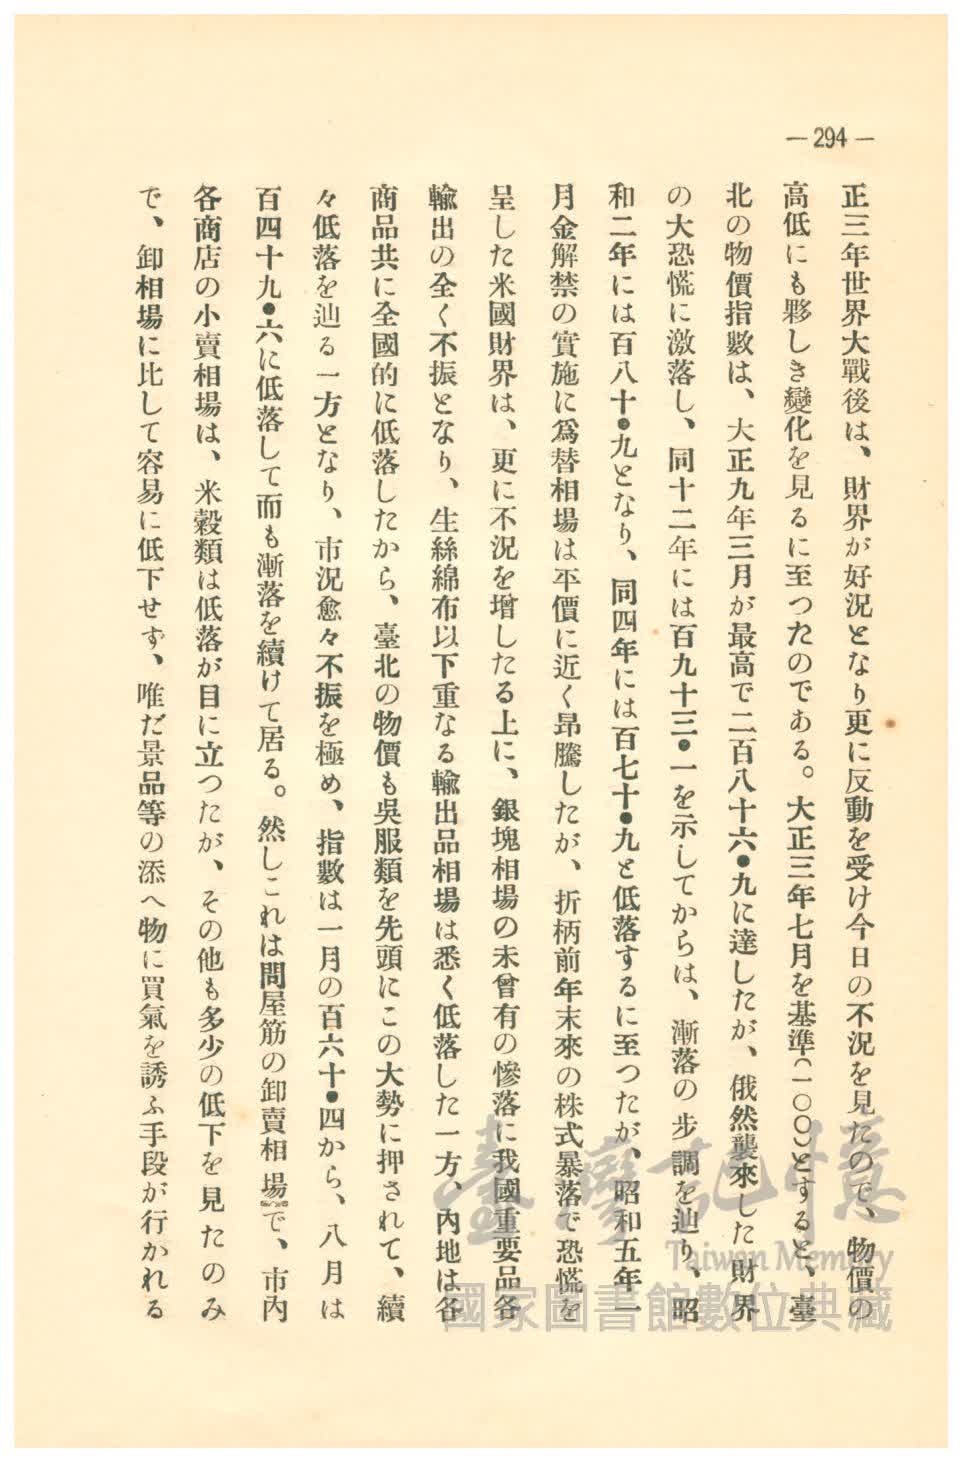 — 294 —
正三年世界大戰後は、財界が好況となり更に反動を受け今日の不況を見たので、物價の
高低にも夥しき變化を見るに至つたのである。大正三年七月を基準(一〇〇)とすると、臺
北の物價指數は、大正九年三月が最高で二百八十六•九に達したが、俄然襲來した財界
の大恐慌に激落し、同十二年には百九十三•一を示してからは、漸落の步調を辿り、昭
和二年には百八十•九となり、同四年には百七十•九と低落するに至つたが、昭和五年一
月金解禁の實施に爲替相場は平價に近く昂騰したが、折柄前年末來の株式暴落で恐慌を
呈した米國財界は、更に不況を增したる上に、銀塊相場の未曾有の慘落に我國重要品各
輸出の全く不振となり、生絲綿布以下重なる輸出品相場は悉く低落した一方、內地は各
商品共に全國的に低落したから、臺北の物價も吳服類を先頭にこの大勢に押されて、續
々低落を辿る一方となり、市況愈々不振を極め、指數は一月の百六十•四から、八月は
百四十九•六に低落して而も漸落を續けて居る。然しこれは問屋筋の卸賣相場で、市內
各商店の小賣相場は、米穀類は低落が目に立つたが、その他も多少の低下を見たのみ
で、卸相場に比して容易に低下せず、唯だ景品等の添へ物に買氣を誘ふ手段が行かれる
臺灣記憶
Taiwan Memory
國家圖書館數位典藏